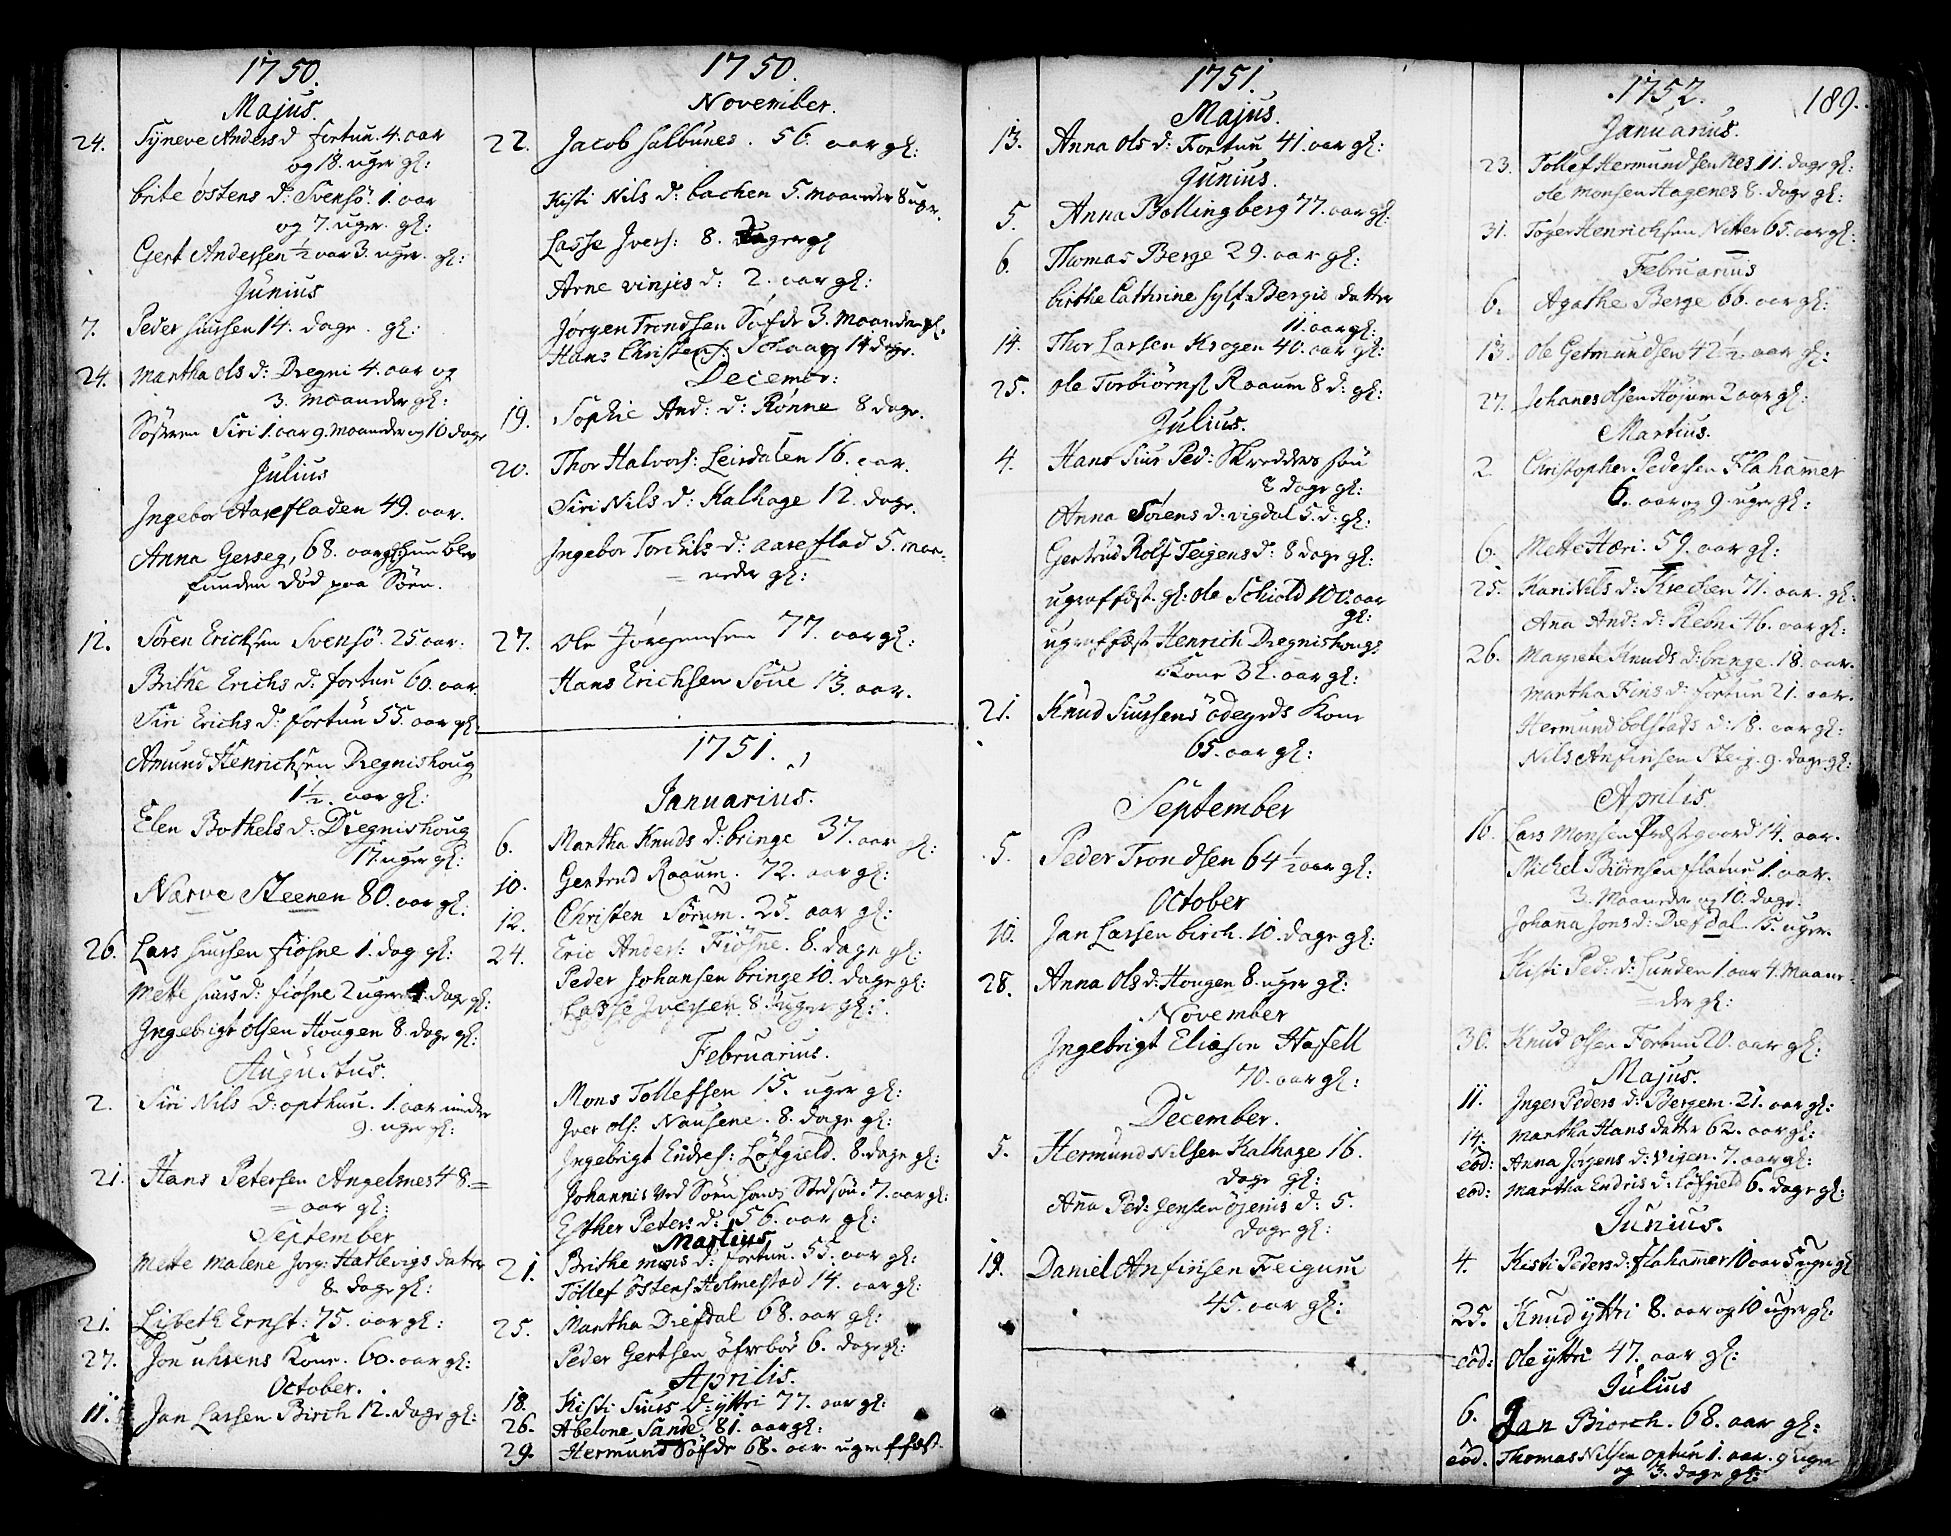 1750.
Majus.
24. Syneve Anders d fortun. 4. aar
og 18. uger gl:
brite östens d: Svensö. 1. aar
og 7. uger. gl:
Gert Andersen ½ aar 3. uger. gl:
Junius
7. Peder siursen 14. dage. gl:
24. Martha ols d: Dregni 4. aar og
3. Maaneder gl:
Søsteren Siri 1. aar 9. Maaneder og 10 dage
Julius
Ingebor Aarefladen 49. aar.
Anna Gerseg, 68. aar gl: hun blev
funden död paa Sören.
12. Sören Ericksen Svensö. 25 aar.
Brithe Erichs d: fortun 60. aar.
Siri Erichs d: fortun 55. aar gl.
Amund Henrichsen Dregnishoug
1½. aar gl:
Elen Bothels d: Dregnishoug
17. uger gl:
Narve Steenen 80. aar gl:
26. Lars siursen fiösne 1. dag gl:
Mette siurs d: fiösne 2 uger 4. dage gl:
Ingebrigt olsen Hougen 8. dage gl:
Augustus.
2. Siri Nils d: opthun. 1. aar under
9. uger gl:
21. Hans Petersen Angelsnes 48. =
= aar gl:
September
Mette Malene Jörg: Hatlevigs datter
8 dage gl:
21. Lisbeth Ernst: 75. aar gl:
27. Jon uhrens Kone. 60. aar gl:
October.
11. Jan Larsen Birch 12. dage gl:
1750.
November.
22. Jacob salbunes. 56. aar gl:
Kisti Nils d: bachen 5. maaneder 8 uger.
Lasse Ivers: 8. dager gl
Arne vinjes d: 2. aar gl:
Jörgen Trondsen Söfde 3. Maaneder gl.
Hans Christens: Schaar 14 dage.
Decembr:
19. Sophie And: d: Rönne 8 dage.
20. Thor Halvors: Leirdalen 16. aar.
Siri Nils d: Kalhage 12. dage.
Ingebor Torchils d: aareflad 5. maa=
= neder gl:
27. Ole Jörgensen 77. aar gl:
Hans Erichsen Söue 13. aar.
1751.
Januarius.
6. Martha Knuds d: bringe 37. aar gl:
10. Gertrud Raaum. 72. aar gl:
12. Christen Sörum. 25. aar gl:
24. Eric Anders: Fiösne. 8. dage gl:
Peder Johansen bringe 10. dage gl:
Lasse Iversen 8. uger gl:
Februarius.
Mons Tollefsen 15. uger gl:
Iver ols: Nausene. 8. dage gl:
Ingebrigt Endres: Löfgield. 8. dage gl:
Johannis ved Sörensons Stedsön. 7. aar gl:
Esther Peters d: 56. aar gl:
Martius
21. Brithe mons d: fortun. 55. aar gl:
Töllef östens: Holmestad 14. aar gl:
25. Martha Diefdal 68. aar gl:
Peder Gertsen öfrebö 6. dage gl:
Aprilis.
18. Kisti Siurs d: yttri 77. aar gl:
26. Abelone Sande. 81. aar gl:
29. Hermund Söfde 68. aar ugraffæst.
1751.
Majus.
13. Anna ols d: Fortun 41. aar gl:
Junius.
5. Anna Bollingberg 77. aar gl:
6. Thomas Berge 29. aar gl:
birthe Cathrine sylf. Bergis datter
11. aar gl:
14. Thor Larsen Krogen 40. aar gl:
25. Ole Torbiörns Raaum 8 d: gl:
Julius.
4. Hans Siur Ped: Skredders sön
8 dage gl:
Anna Sörens d: vigdal 5. d: gl:
Gertrud Rolf Teigens d: 8 dage gl:
ugraffæst. gl: ole Schiold 100. aar
gl:
ugraffæst Henrich Dregnishougs
Kone 32. aar gl:
21. Knud Siursens ödegrds Kone
65. aar gl:
September
5. Peder Trondsen 64½ aar gl:
October
10. Jan Larsen birch. 10. dage gl:
28. Anna Ols d: Hougen 8. uger gl:
November
Ingebrigt Eliason Hafell
70. aar gl:
December.
5. Hermund Nilsen Kalhage 16.
dage gl:
Anna Ped: Jensen öjenis d: 5.
dage gl:
19. Daniel Anfinsen Feigum
45. aar gl:
1752. 189.
Januarius.
23. Tollef Hermundsen Nes 11. dage gl:
ole monsen Hagenes 8. dage gl:
31. Töger Henrichsen Nitter 65. aar gl:
Februarius
6. Agathe Berge 66. aar gl:
13. Ole Getmundsen 42½. aar gl:
27. Johanes olsen Höjum 2 aar gl:
Martius.
2. Christopher Pedersen Flahamer
6. aar og 9. uger gl:
6. Mette Hæri. 59. aar gl:
25. Kari Nils d: Kreken 71. aar. gl:
Ana And: d: Rebni 46. aar gl:
26. Margrete Knuds d: bringe. 18. aar.
Martha Fins d: fortun 21. aar.
Hermund bolstads d: 18. aar gl:
Nils Anfinsen Steig. 9. dage gl:
Aprilis.
16. Lars Monsen Præstegaard 14. aar.
Michel Biörnsen flatne 1. aar.
3. Maaneder og 10. dage.
Johana Jons d: Diefdal. 15. uger.
Kisti Ped: d: Lunden 1 aar 4. Maane=
= der gl:
30. Knud olsen Fortun 20. aar gl:
Majus.
11. Inger Peders d: Bergem. 21. aar gl:
14. Martha Hans datter 62. aar gl:
eöd: Anna Jörgens d: vigen. 7. aar gl:
eod: Martha Endris d: Löfgield 6. dage gl:
Junius.
4. Kisti Peders d: flahamer 10 aar 5 uger gl
25. Knud yttri 8. aar og 10 uger gl:
eöd: Ole yttri 47. aar gl:
Julius
6. Jan Biorch. 68. aar gl:
eöd. Thomas Nilsen optun 1. aar. 9 uger
og 3. dage gl: